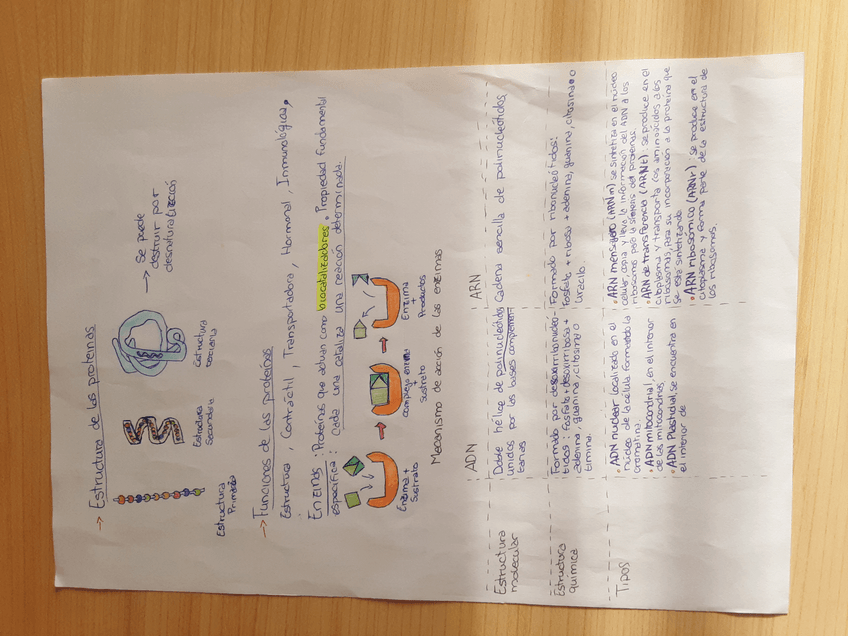 → Estructura de las proteínas
→ Se puede
destruir por
desnaturalización
Estructura
Primaria
Estructura
Secundaria
Estructura
terciaria
→ Funciones de las proteínas
Estructura, Contráctil, Transportadora, Hormonal, Inmunológica.
Enzimas: Proteínas que actúan como biocatalizadores. Propiedad fundamental
específica: cada una cataliza una reacción determinada.
Enzima + Sustrato
Complejo enzima + Sustrato
Enzima + Productos
Mecanismo de acción de las enzimas
ADN
ARN
Estructura
molecular
Doble hélice de polinucleótidos
unidos por las bases complemen-
tarias
Cadena sencilla de polinucleótidos
Estructura
química
Formado por desoxirribonucleó-
tidos: fosfato + desoxirribosa +
adenina, guanina, citosina o
timina.
Formado por ribonucleótidos:
fosfato + ribosa + adenina, guanina, citosina o
uracilo.
Tipos
• ADN nuclear localizado en el
núcleo de la célula formando la
cromatina.
• ADN mitocondrial, en el interior
de las mitocondrias.
• ADN Plastidial, se encuentra en
el interior de
• ARN mensajero (ARNm) se sintetiza en el núcleo
celular, copia y lleva la información del ADN a los
ribosomas para la síntesis de proteínas.
• ARN de transferencia (ARNt): se produce en el
citoplasma y transporta los aminoácidos a los
ribosomas, para su incorporación a la proteína que
se está sintetizando.
• ARN ribosómico (ARNr): se produce en el
citoplasma y forma parte de la estructura de
los ribosomas.